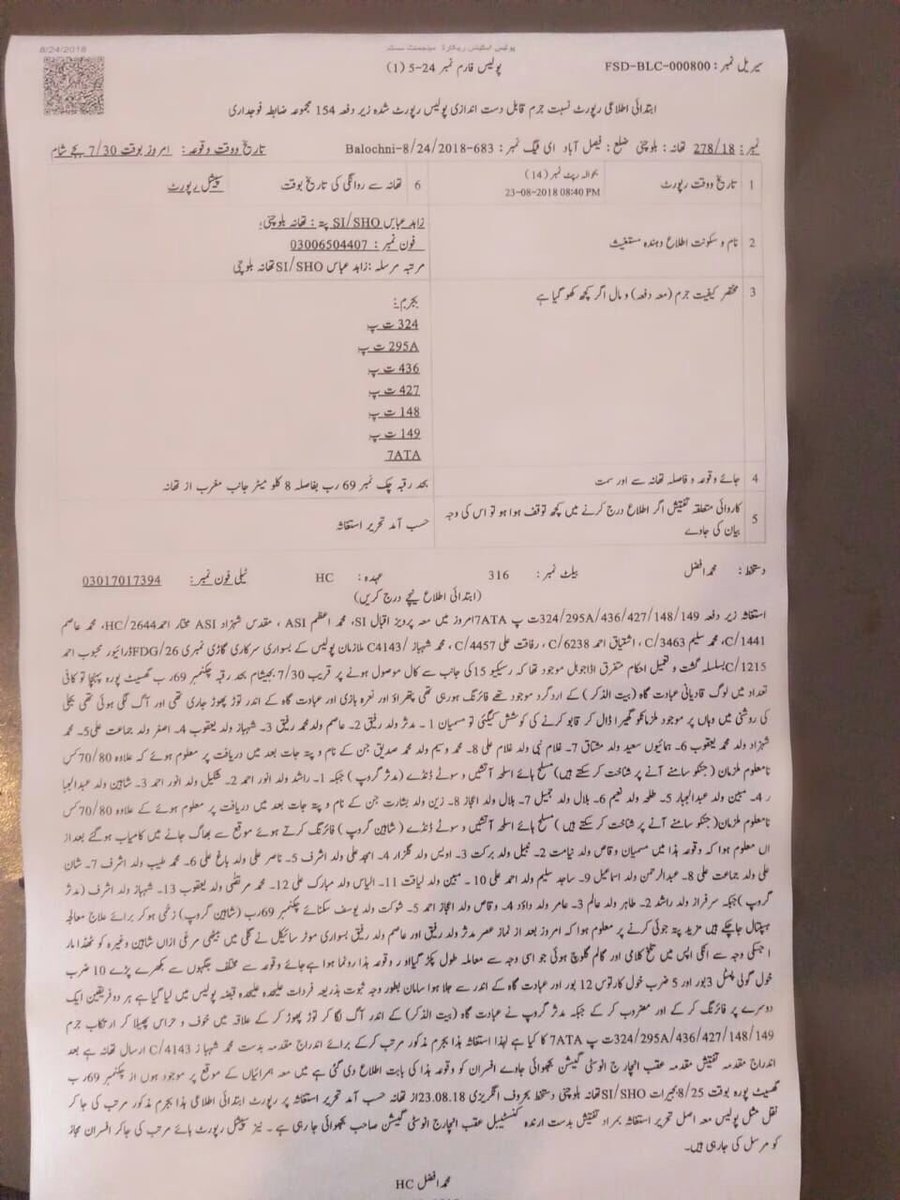 8/24/2018
پولیس اسٹیشن ریکارڈ مینجمنٹ سسٹم
سیریل نمبر : FSD-BLC-000800
پولیس فارم نمبر 24-5 (1)
ابتدائی اطلاعی رپورٹ نسبت جرم قابل دست اندازی پولیس رپورٹ شدہ زیر دفعہ 154 مجموعہ ضابطہ فوجداری
نمبر: 278/18 تھانہ : بلوچنی ضلع : فیصل آباد ای ٹیگ نمبر : Balochni-8/24/2018-683 تاریخ ووقت وقوعہ : امروز بوقت 7/30 بجے شام
1 تاریخ ووقت رپورٹ بحوالہ رپٹ نمبر (14) 23-08-2018 08:40 PM 6 تھانہ سے روانگی کی تاریخ بوقت سپیشل رپورٹ
2 نام و سکونت اطلاع دہندہ مستغیث زاہد عباس SI/SHO پتہ : تھانہ بلوچنی،
فون نمبر : 03006504407
مرتبہ مرسلہ : زاہد عباس SI/SHO تھانہ بلوچنی
3 مختصر کیفیت جرم (معہ دفعہ) و مال اگر کچھ کھو گیا ہے بجرم:
324 ت پ
295A ت پ
436 ت پ
427 ت پ
148 ت پ
149 ت پ
7ATA
4 جائے وقوعہ و فاصلہ تھانہ سے اور سمت بحد رقبہ چک نمبر 69 رب بفاصلہ 8 کلو میٹر جانب مغرب از تھانہ
5 کاروائی متعلقہ تفتیش اگر اطلاع درج کرنے میں کچھ توقف ہوا ہو تو اس کی وجہ بیان کی جاوے حسب آمد تحریر استغاثہ
دستخط : محمد افضل بیلٹ نمبر : 316 عہدہ : HC ٹیلی فون نمبر : 03017017394
(ابتدائی اطلاع نیچے درج کریں)
استغاثہ زیر دفعہ 324/295A/436/427/148/149 ت پ 7ATA امروز میں معہ پرویز اقبال SI، محمد اعظم ASI ، مقدس شہزاد ASI مختار احمد HC/2644، محمد عاصم
C/1441، محمد سلیم C/3463، اشتیاق احمد C/6238، رفاقت علی C/4457، محمد شہباز C4143/ ملازمان پولیس کے بسواری سرکاری گاڑی نمبری FDG/26 ڈرائیور محبوب احمد
C/1215 بسلسلہ گشت و تعمیل احکام متفرق اڈا جوبل موجود تھا کہ ریسکیو 15 کی جانب سے کال موصول ہونے پر قریب 7/30 بجے شام بحد رقبہ چکنمبر 69 رب گھسیٹ پورہ پہنچا تو کافی
تعداد میں لوگ قادیانی عبادت گاہ (بیت الذکر) کے ارد گرد موجود تھے فائرنگ ہو رہی تھی پتھراؤ اور نعرہ بازی اور عبادت گاہ کے اندر توڑ پھوڑ جاری تھی اور آگ لگی ہوئی تھی بجلی
کی روشنی میں وہاں پر موجود ملزمانکو گھیرا ڈال کر قابو کرنے کی کوشش کیگئی تو مسمیان 1 - مدثر ولد رفیق 2- عاصم ولد محمد رفیق 3- شہباز ولد یعقوب 4- اصغر ولد جماعت علی 5- محمد
شہزاد ولد محمد یعقوب 6- ہمایوں سعید ولد مشتاق 7- غلام نبی ولد غلام علی 8- محمد وسیم ولد محمد صدیق جن کے نام و پتہ جات بعد میں دریافت پر معلوم ہوئے کہ علاوہ 70/80 کس
نامعلوم ملزمان (جنکو سامنے آنے پر شناخت کر سکتے ہیں) مسلح ہائے اسلحہ آتشیں و سوٹے ڈنڈے (مدثر گروپ) جبکہ 1- راشد ولد انور احمد 2- شکیل ولد انور احمد 3- شاہین ولد عبدالجبا
ر 4- مبین ولد عبدالجبار 5- طلحہ ولد نعیم 6- بلال ولد جمیل 7- بلال ولد اعجاز 8- زین ولد بشارت جن کے نام و پتہ جات بعد میں دریافت پر معلوم ہوئے کے علاوہ 70/80 کس
نامعلوم ملزمان (جنکو سامنے آنے پر شناخت کر سکتے ہیں) مسلح ہائے اسلحہ آتشیں و سوٹے ڈنڈے (شاہین گروپ) فائرنگ کرتے ہوئے موقع سے بھاگ جانے میں کامیاب ہو گئے بعد از
اں معلوم ہوا کہ وقوعہ ہذا میں مسمیان وقاص ولد نیامت 2- نبیل ولد برکت 3- اویس ولد گلزار 4- امجد علی ولد اشرف 5- ناصر علی ولد باغ علی 6- محمد طیب ولد اشرف 7- شان
علی ولد جماعت علی 8- عبدالرحمن ولد اسماعیل 9- ساجد سلیم ولد احمد علی 10 - مبین ولد لیاقت 11- الیاس ولد مبارک علی 12- محمد مرتضی ولد یعقوب 13- شہباز ولد اشرف (مدثر
گروپ) جبکہ سرفراز ولد راشد 2- طاہر ولد عالم 3- عامر ولد داؤد 4- وقاص ولد اعجاز احمد 5- شوکت ولد یوسف سکنائے چکنمبر 69 رب (شاہین گروپ) زخمی ہو کر برائے علاج معالجہ
ہسپتال جاچکے ہیں مزید پتہ جوئی کرنے پر معلوم ہوا کہ امروز بعد از نماز عصر مدثر ولد رفیق اور عاصم ولد رفیق بسواری موٹر سائیکل نے گلی میں بیٹھی مرغی ازاں شاہین وغیرہ کو ٹھڈا مار
ا جسکی وجہ سے انکی اپس میں تلخ کلامی اور گالم گلوچ ہوئی جو اسی وجہ سے معاملہ طول پکڑ گیا اور وقوعہ ہذا رونما ہوا ہے جائے وقوعہ سے مختلف جگہوں سے بکھرے پڑے 10 ضرب
خول گولی پسٹل 30 بور اور 5 ضرب خول کارتوس 12 بور اور عبادت گاہ کے اندر سے جلا ہوا سامان بطور وجہ ثبوت بذریعہ فردات علیحدہ علیحدہ قبضہ پولیس میں لیا گیا ہے ہر دو فریقین ایک
دوسرے پر فائرنگ کر کے اور مضروب کر کے جبکہ مدثر گروپ نے عبادت گاہ (بیت الذکر) کے اندر آگ لگا کر توڑ پھوڑ کر کے علاقہ میں خوف و حراس پھیلا کر ارتکاب جرم
324/295A/436/427/148/149 ت پ 7ATA کا کیا ہے لہذا استغاثہ ہذا بجرم مذکور مرتب کر کے برائے اندراج مقدمہ بدست محمد شہباز C/4143 ارسال تھانہ ہے بعد
اندراج مقدمہ تفتیش مقدمہ عقب انچارج انوسٹی گیشن بھجوائی جاوے افسران کو وقوعہ ہذا کی بابت اطلاع دی گئی ہے میں معہ ہمراہیاں کے موقع پر موجود ہوں از چکنمبر 69 رب
گھسیٹ پورہ بوقت 8/25 بجے رات SI/SHO تھانہ بلوچنی دستخط بحروف انگریزی 23.08.18 از تھانہ حسب آمد تحریر استغاثہ پر رپورٹ ابتدائی اطلاعی ہذا بجرم مذکور مرتب کی جا کر
نقل مثل پولیس معہ اصل تحریر استغاثہ بمراد تفتیش بدست آرندہ کنسٹیبل عقب انچارج انوسٹی گیشن صاحب بھجوائی جا رہی ہے - نیز سپیشل رپورٹ ہائے مرتب کی جا کر افسران مجاز
کو مرسل کی جا رہی ہیں-
محمد افضل HC